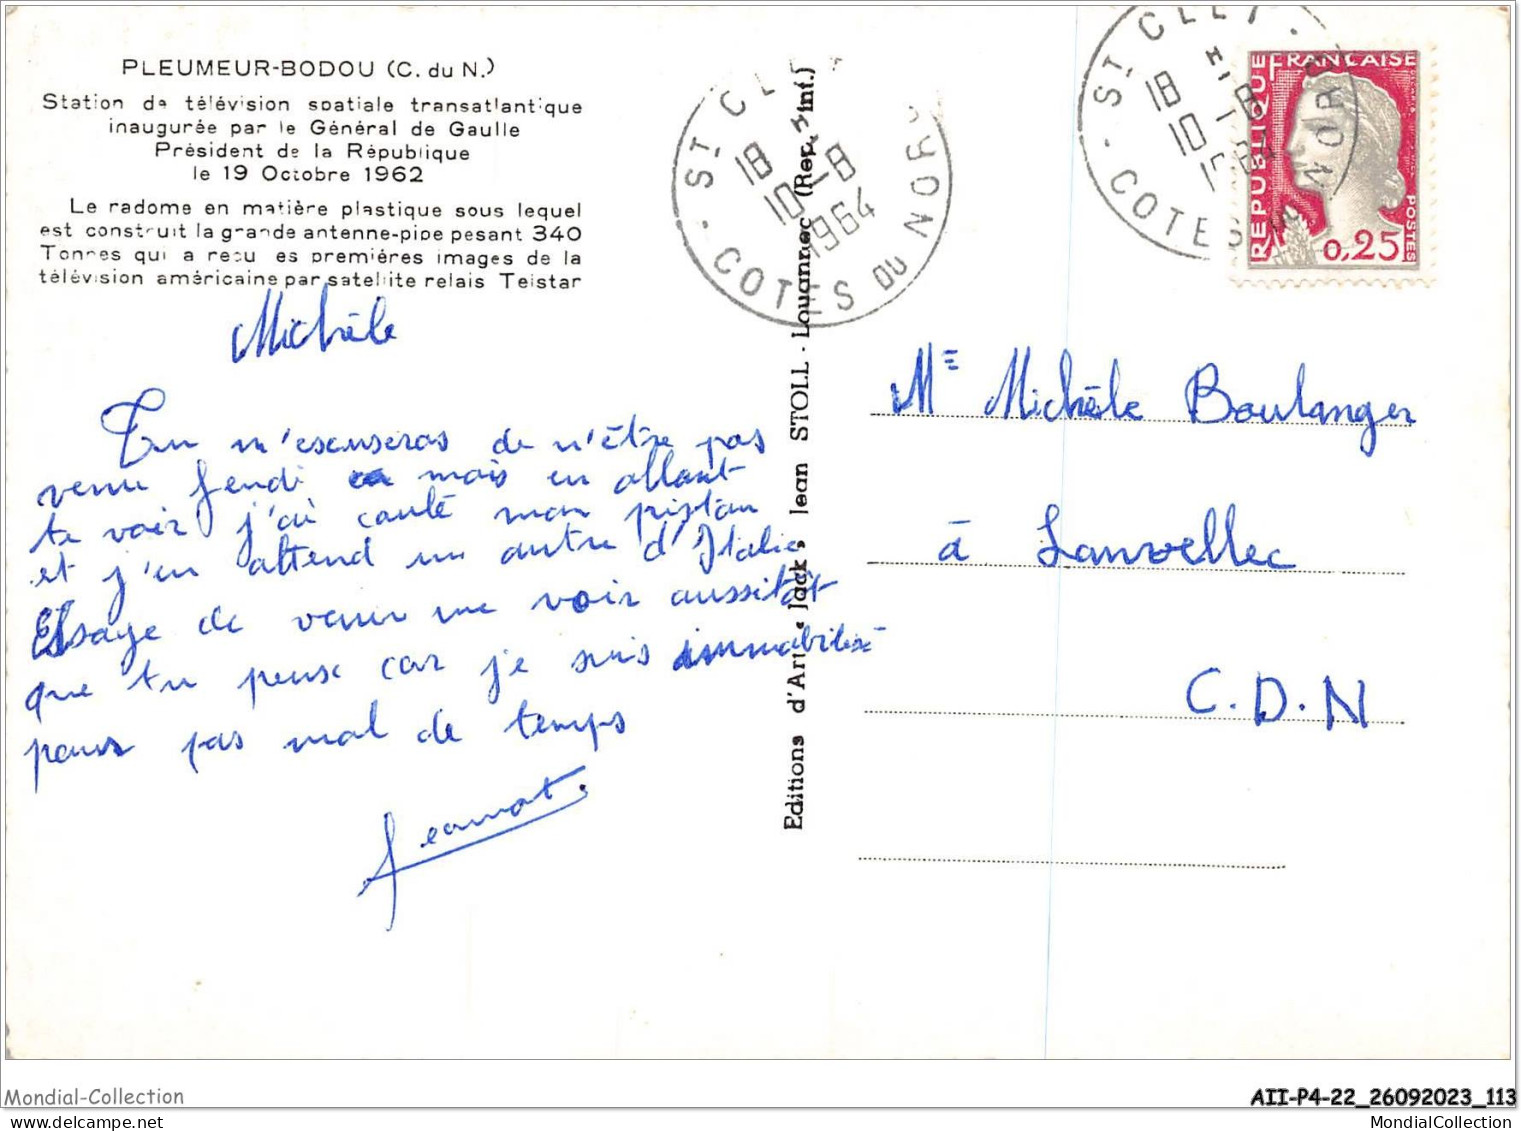 PLEUMEUR-BODOU (C. du N.)
Station de télévision spatiale transatlantique
inaugurée par le Général de Gaulle
Président de la République
le 19 Octobre 1962
Le radome en matière plastique sous lequel
est construit la grande antenne-pipe pesant 340
Tonnes qui a reçu les premières images de la
télévision américaine par satellite relais Telstar
Michèle
Tu m'escuseras de n'être pas
venu Jeudi mais en allant
te voir j'ai coulé mon piston
et j'en attend un autre d'Italie
Essaye de venir me voir aussitôt
que tu peux car je suis immobilisé
pour pas mal de temps
Jeannot.
Editions d'Art Jack Jean STOLL - Louannec (Rep. Int.)
ST CLET
18 H
10-8
1964
COTES DU NORD
ST CLET
18 H
10-8
COTES DU NORD
REPUBLIQUE FRANCAISE
POSTES
0,25
Mle Michèle Boulanger
à Lanvellec
C.D.N
Mondial-Collection
AII-P4-22_26092023_113
MondialCollection